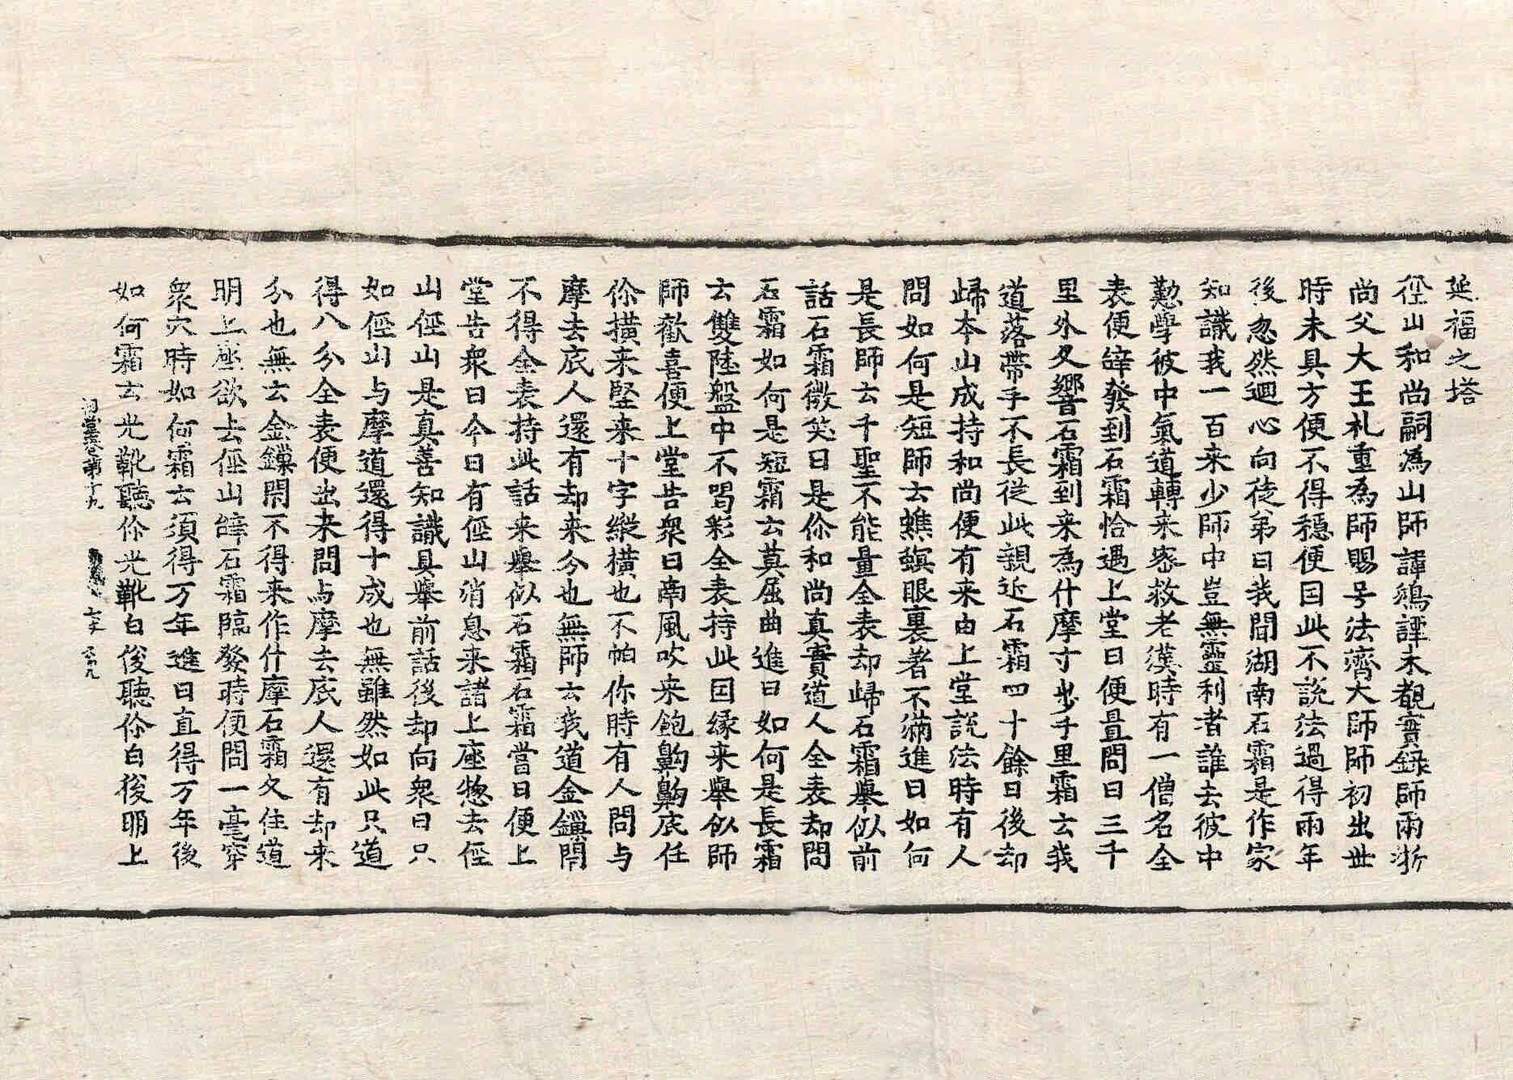 延福之塔
徑山和尚嗣為山師諱鴻諲未覩實錄師兩浙
尚父大王礼重為師賜号法濟大師師初出世
時未具方便不得穩便因此不說法過得兩年
後忽然迴心向徒弟曰我聞湖南石霜是作家
知識我一百来少師中豈無靈利者誰去彼中
懃學彼中氣道轉来密救老漢時有一僧名全
表便辝發到石霜恰遇上堂日便置問曰三千
里外久響石霜到来為什摩寸步千里霜云我
道落帶手不長從此親近石霜四十餘日後却
歸本山成持和尚便有来由上堂說法時有人
問如何是短師云蟭螟眼裏著不滿進曰如何
是長師云千聖不能量全表却歸石霜舉似前
話石霜微笑曰是你和尚真實道人全表却問
石霜如何是短霜云莫屈曲進曰如何是長霜
云雙陸盤中不喝彩全表持此因緣来舉似師
師歡喜便上堂告衆曰南風吹来飽齁齁底任
你橫来竪来十字縱橫也不怕你時有人問与
摩去底人還有却来分也無師云我道金鏁閇
不得全表持此話来舉似石霜石霜當日便上
堂告衆曰今日有俓山消息来諸上座惣去俓
山俓山是真善知識具舉前話後却向衆曰只
如俓山与摩道還得十成也無雖然如此只道
得八分全表便出来問与摩去底人還有却来
分也無云金鏁閇不得来作什摩石霜又住道
明上座欲去俓山辝石霜臨發時便問一毫穿
衆穴時如何霜云須得万年進曰直得万年後
如何霜云光靴聽你光靴白俊聽你白俊明上